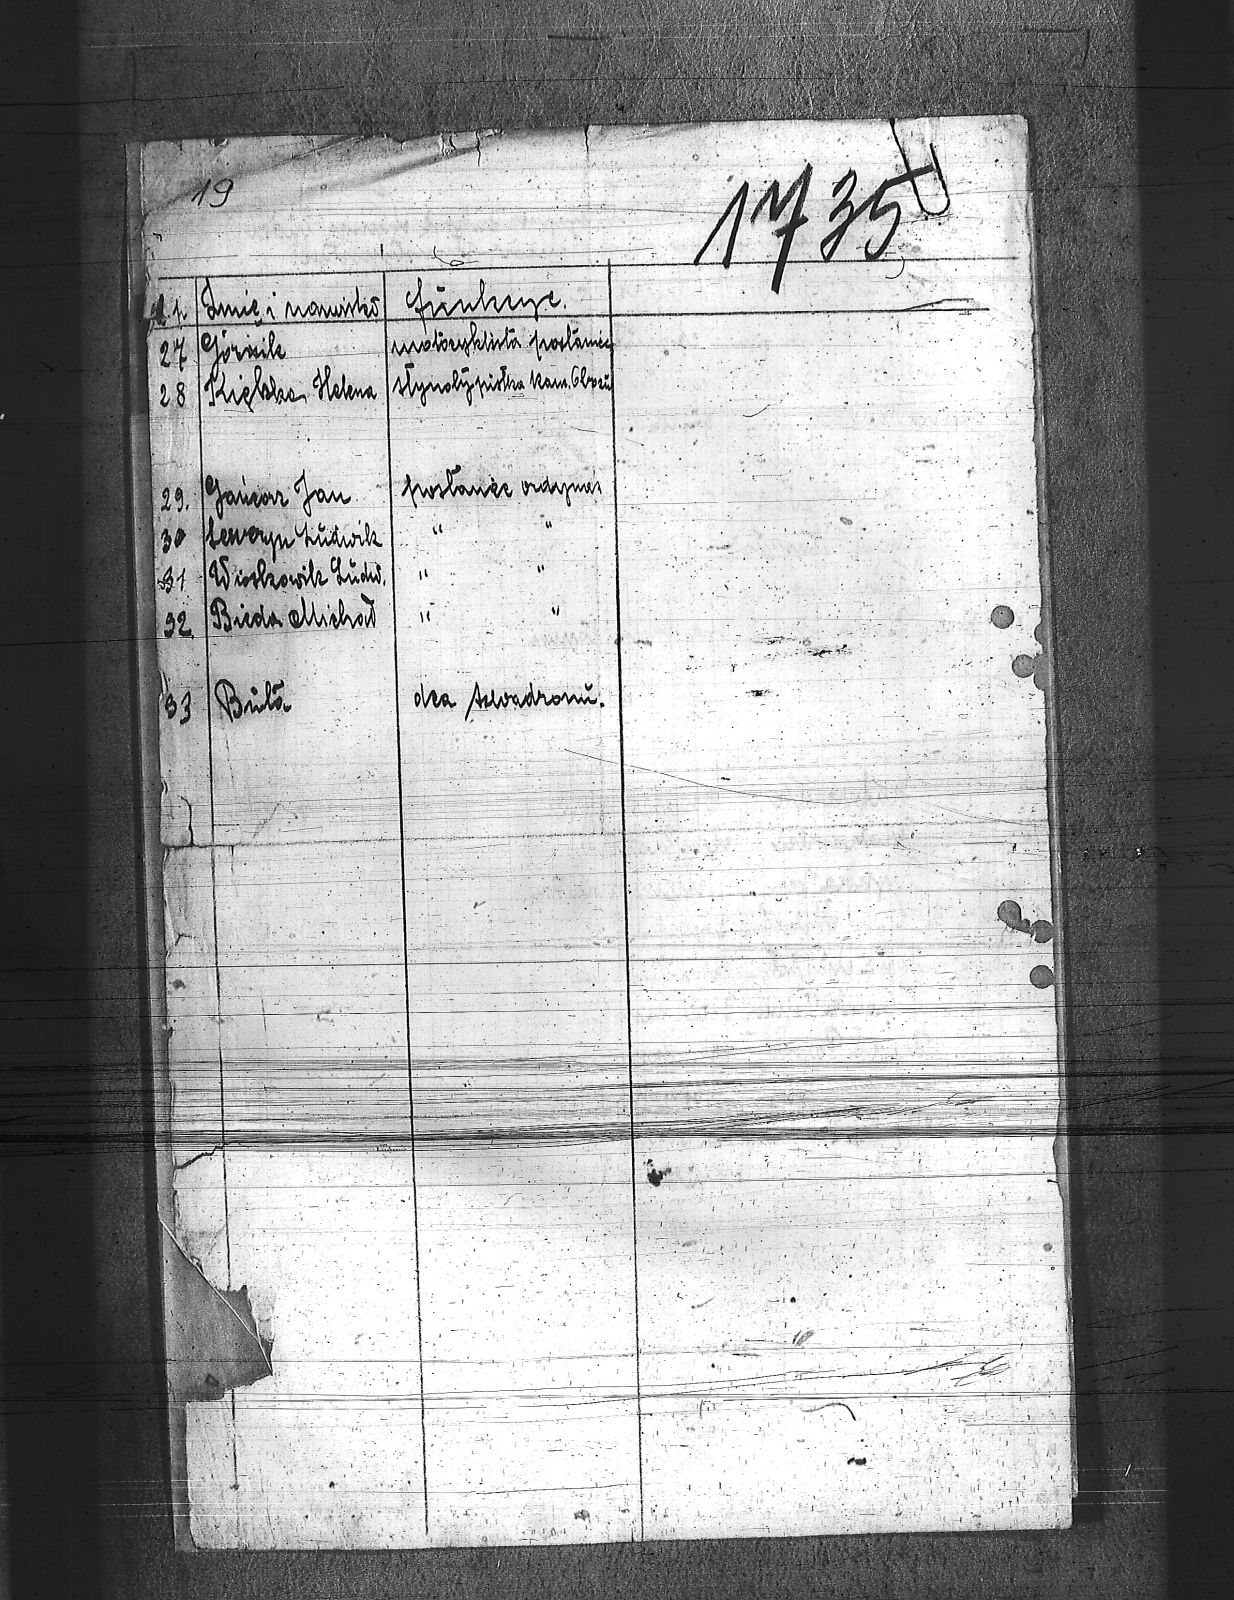 19
1735
L. p. Imię i nazwisko funkcje.
27 Górnik motocyklista posłaniec
28 Helena stynotypistka kom. Obozu
29. Gancarz Jan posłaniec ordynas
30 Seweryn Ludwik " "
31 Wioskowik Ludw. " "
32 Bieda Michał " "
33 Buła dca szwadronu.